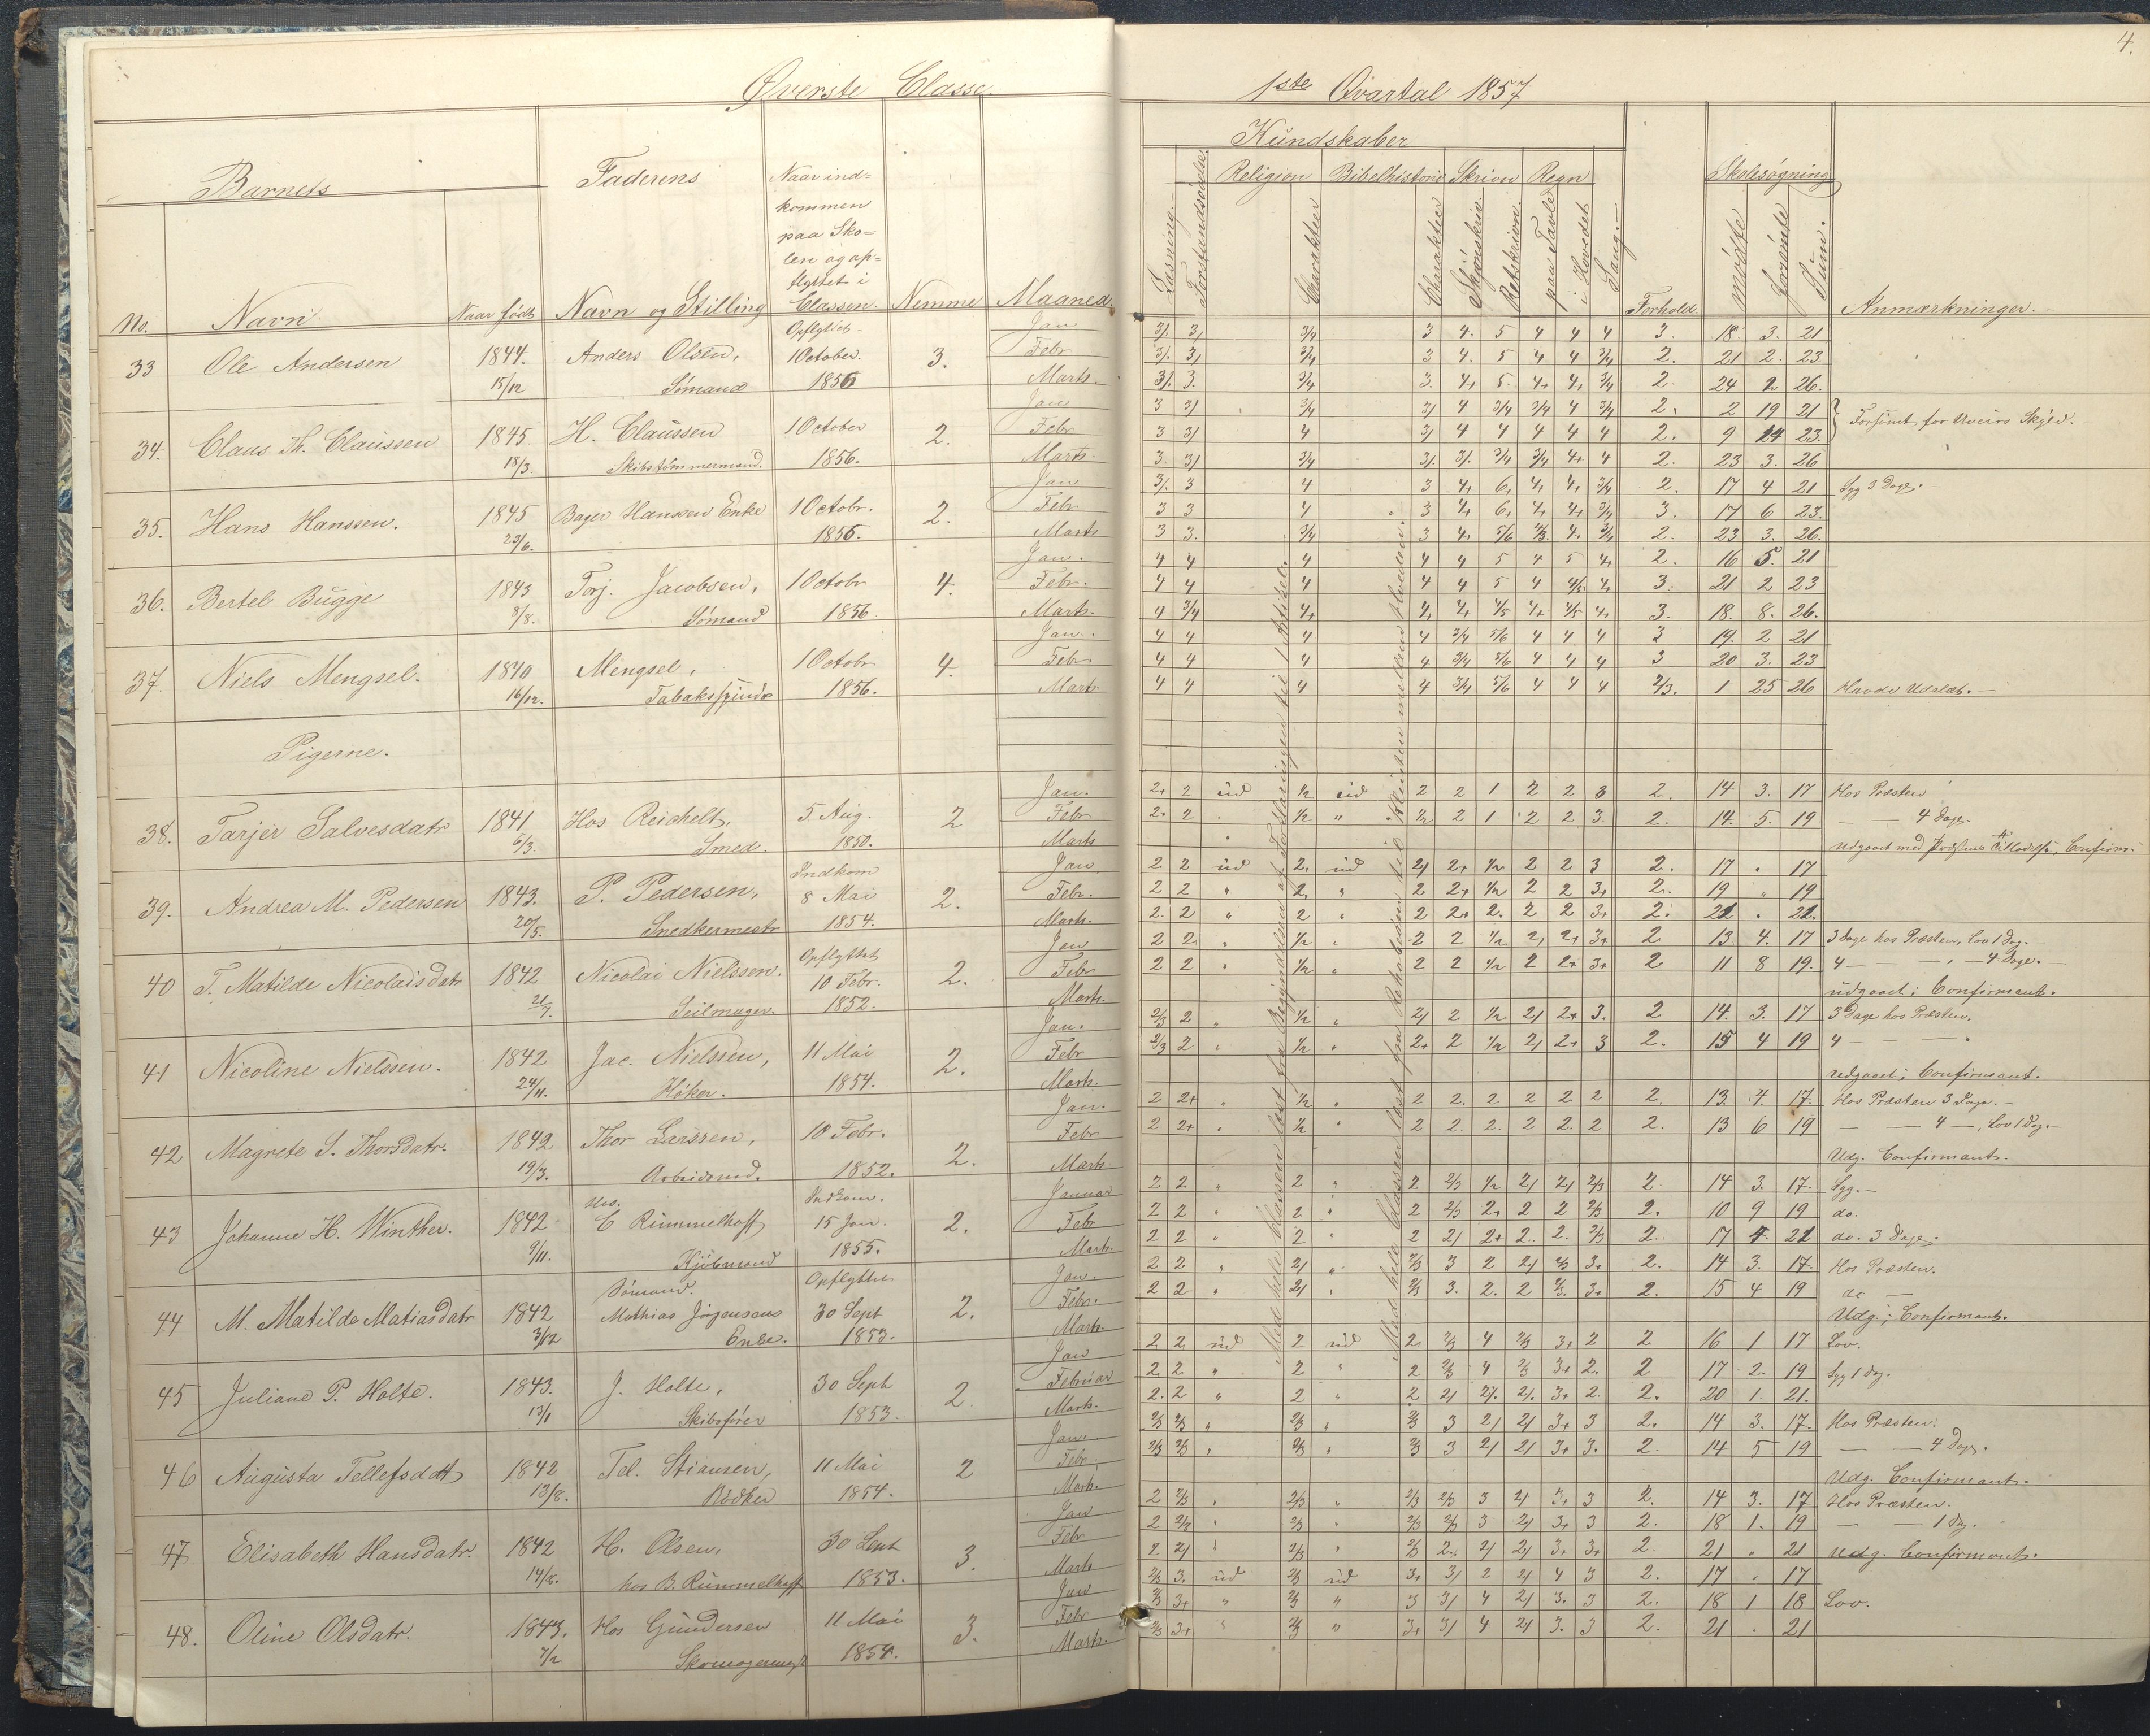 4.
Øverste Classe.
1ste Qvartal 1857
Barnets
Faderens
Naar ind=
kommen
paa Sko=
len og op=
flyttet i
Classen.
Nemme
Maaned.
No.
Navn
Naar født
Navn og Stilling
Kundskaber
Læsning.
Forstandsøvelse
Religion
Charakteer
Bibelhistorie
Charakteer
Skriven
Skjønskriv.
Retskrivn.
Regn
paa Tavle
i Hovedet
Sang.
Forhold.
Skolesøgning
Mødte
Forsømte
Sum.
Anmærkninger.
33 Ole Andersen 1844. 15/12 Anders Olsen, Sömand Opflyttet 1 October. 1856 3.
Jan 3/. 3/ 3/4 3 4. 5 4 4 4 3. 18. 3. 21
Febr 3/. 3/ 3/4 3 4. 5 4 4 3/4 2. 21 2. 23
Marts. 3/. 3. 3/4 3. 4+ 5. 4+ 4+ 3/4 2. 24 2 26.
34. Claus Th. Claussen 1845. 18/3. H. Claussen Skibstömmermand. 1 October 1856. 2.
Jan 3 3/ 3/4 3/ 4 3/4 3/4 4 3/4 2. 2 19 21 Forsömt for Uveirs Skyld.
Febr 3 3/ 4 3/ 4 4 4 4 4 2. 9 14 23.
Marts. 3. 3/ 3/4 3/. 3/. 3/4 3/4 4+ 4 2. 23 3. 26
35. Hans Hanssen. 1845 23/6. Bager Hanssen Enke 1 Octobr. 1856. 2.
Jan 3/. 3 4 3 4+ 6+ 4+ 4+ 3/4 2. 17 4 21 Syg 3 Dage.
Febr 3 3 4 3 4+ 6+ 4+ 4+ 3/4 3. 17 6 23.
Marts 3 3. 3/4 3 4+ 5/6 4/5. 4+ 3/4 2. 23 3. 26.
36. Bertel Bugge 1843 8/8. Torj. Jacobsen, Sömand 1 Octobr 1856. 4.
Jan. 4 4 4 4 4 5 4 5 4+ 2. 16 5. 21
Febr. 4 4 4 4 4 5 4 4/5 4+ 3. 21 2 23
Marts. 4 3/4 4+ 4+ 4+ 4/5 4+ 4/5 4+ 3. 18. 8. 26.
37. Niels Mengsel. 1840 16/12. Mengsel, Tabaksspinder 1 Octobr 1856. 4.
Jan. 4 4 4 4 3/4 5/6 4 4 4 3 19. 2 21
Febr 4 4 4 4 3/4 5/6 4 4 4 3 20 3. 23
Marts 4 4 4 4 3/4 5/6 4 4 4 2/3. 1 25 26 Havde Udslæt.
Pigerne.
38. Tarjer Salvesdatr 1841 6/3. Hos Reichelt, Smed. 5. Aug. 1850. 2
Jan. 2+ 2 ud 1/2 ud 2 2 1 2 2 3 2. 14. 3. 17 Hos Præsten
Febr 2+ 2 1/2 " 1/2 2 1 2 2 3. 2. 14. 5. 19 — — 4 Dage.
Marts Udgaaet med Præstens Tilladelse, Confirm.
39. Andrea M. Pedersen 1843. 20/5. P. Pedersen, Snedkermestr Indkom 8 Mai 1854. 2.
Jan 2 2 ud 2. ud 2/ 2+ 1/2 2 2 3 2. 17 " 17
Febr. 2 2 " 2. " 2 2+ 1/2 2 2 3+ 2. 19 " 19
Marts. 2. 2 " 2 " 2 2+ 2. 2 2 3+ 2. 21 " 21.
40 T. Matilde Nicolaisdatr 1842 21/7. Nicolai Nielssen. Seilmager. Opflyttet 10 Febr. 1852. 2.
Jan 2 2 " 1/2 " 2 2 1/2 2/ 2+ 3+ 2 13. 4. 17 3 Dage hos Præsten, Lov 1 Dag.
Febr 2 2 " 1/2 " 2 2 1/2 2 2+ 3+ 2 11 8 19. 4 — — — 4 Dage.
Marts. udgaaet; Confirmant.
41 Nicoline Nielssen. 1842 24/11. Jac. Nielssen, Höker. 11 Mai 1854. 2.
Jan. 2/3 2 " 1/2 " 2/ 2 1/2 2/ 2+ 3. 2 14. 3. 17 3 Dage hos Præsten.
Febr 2/3 2 " 1/2 " 2+ 2 1/2 2/ 2+ 3 2. 15 4 19 4 — — —
Marts. Udgaaet; Confirmant.
42 Magrete S. Thorsdatr. 1842 19/3. Thor Larssen, Arbeidsmd. 10 Febr. 1852. 2.
Jan. 2 2+ " 1/2 " 2 2. 2 2 2 2 2. 13. 4. 17. Hos Præsten 3 Dage.
Febr 2 2+ " 1/2 " 2 2. 2. 2 2. 2 2. 13 6 19 — — 4 —, Lov 1 Dag.
Marts. Udg. Confirmant.
43 Johanne H. Winther. 1842 9/11. Hos. C Rummelhoff Kjöbmand Indkom. 15 Jan. 1855. 2.
Januar 2 2 " 2 " 2 2/3 1/2 2/ 2/ 2/3 2. 14 3. 17. Syg.
Febr 2 2 " 2 " 2 2/3 2+ 2 2 2/3 2. 10 9 19 do.
Marts. 2 2 " 2 " 2 2/ 2+ 2. 2. 2/3 2. 17 4. 21 do. 3 Dage.
44 M. Matilde Matiasdatr 1842 3/12 Sömand. Mathias Jörgensens Enke. Opflyttet 30 Sept 1853. 2.
Jan. 2 2 " 2/ " 2/3 3 2 2/ 2/3 3+ 2. 14 3. 17. Hos Præsten.
Febr. 2 2 " 2/ " 2/3 3. 2. 2 2/3. 3+ 2. 15 4 19 do —
Marts. Udg.; Confirmant.
45 Juliane P. Holte. 1843. 13/1 J. Holte, Skibsfører 30 Sept 1853. 2.
Jan 2 2 ud 2 ud 2 2/3 4 2/3 3+ 2 2 16 1 17 Lov.
Februar 2 2 " 2 " 2 2/3 4 2/3 3+ 2. 2 17 2. 19 Syg 1 Dag.
Marts. 2. 2 " 2 " 2 2/ 2/. 2/. 3+ 2. 2. 20 1. 21.
46 Augusta Tellefsdatt 1842 13/8. Tel. Stiansen, Bödker 11 Mai 1854. 2
Jan. 2/3 2/3 " 2/3 " 2/3 3 2/ 2/ 3+ 3 2. 14 3. 17. Hos Præsten.
Febr. 2/3 2/3 " 2/3 " 2/3 3 2/ 2/ 3+ 3. 2. 14 5 19 — — 4 Dage.
Marts. Udg. Confirmant.
47 Elisabeth Hansdatr. 1842 14/8. H. Olsen, hos B. Rummelhoff 30 Sept 1853. 3.
Jan 2 2/3 " 2/3 " 2/3 2/3 3 2/ 3+ 3 2. 14 3. 17 Hos Præsten.
Febr 2 2/3 " 2/3 " 2/3 2/3 3 2/ 3+ 3 2. 18 1. 19 — — 1 Dag.
Marts 2 2/ " 2/3 " 2/3 2. 2/ 2/ 3+ 3+ 2. 21 " 21 Udg. Confirmant.
48. Oline Olsdatr. 1843. 7/2 Hos Gundersen Skomagermst 11 Mai 1854. 3.
Jan 2/3 3. ud 2/3 ud 3+ 3/ 2 2/ 4 3 2. 17 " 17
Febr 2/3 3+ " 2/3 " 3 3/ 4 2/ 3. 3 2. 18 1 18 Lov.
Marts. 2/3 3+ " 2/3 " 3+ 3/ 4 2/ 3. 3 2. 21 . 21
Med hele Klassen læst fra Begyndelsen af Forklaringen til 1 Artikel.
Med hele Classen læst fra Rehabeam til Kristen mellem